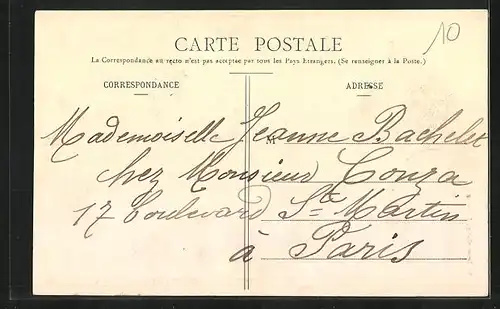 10
CARTE POSTALE
La Correspondance au recto n'est pas acceptée par tous les Pays Etrangers. (Se renseigner à la Poste.)
CORRESPONDANCE
ADRESSE
M
Mademoiselle Jeanne Bachelet
chez Monsieur Conza
17 boulevard St Martin
à Paris